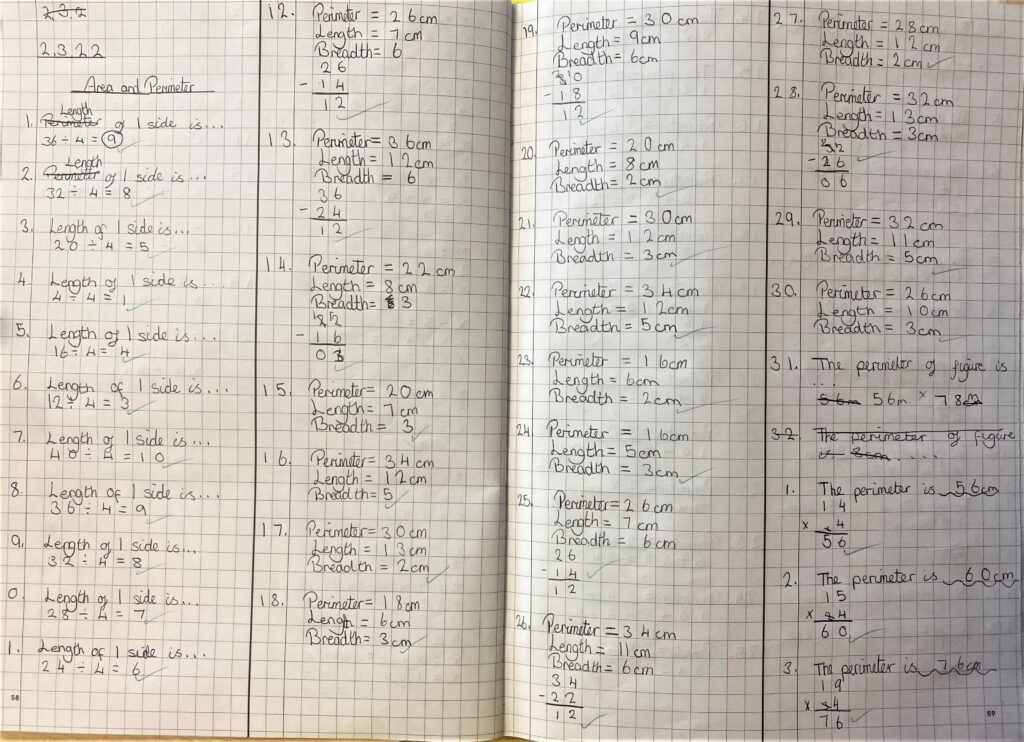 2.3.2
2.3.22
Area and Perimeter
Length
1. Perimeter of 1 side is...
36 ÷ 4 = 9
Length
2. Perimeter of 1 side is...
32 ÷ 4 = 8
3. Length of 1 side is...
20 ÷ 4 = 5
4. Length of 1 side is...
4 ÷ 4 = 1
5. Length of 1 side is...
16 ÷ 4 = 4
6. Length of 1 side is...
12 ÷ 4 = 3
7. Length of 1 side is...
40 ÷ 4 = 10
8. Length of 1 side is...
36 ÷ 4 = 9
9. Length of 1 side is...
32 ÷ 4 = 8
0. Length of 1 side is...
28 ÷ 4 = 7
1. Length of 1 side is...
24 ÷ 4 = 6
58
12. Perimeter = 26cm
Length = 7cm
Breadth = 6
26
- 14
12
13. Perimeter = 36cm
Length = 12cm
Breadth = 6
36
- 24
12
14. Perimeter = 22cm
Length = 8cm
Breadth = 3
22
- 16
03
15. Perimeter = 20cm
Length = 7cm
Breadth = 3
16. Perimeter = 34cm
Length = 12cm
Breadth = 5
17. Perimeter = 30cm
Length = 13cm
Breadth = 2cm
18. Perimeter = 18cm
Length = 6cm
Breadth = 3cm
19. Perimeter = 30cm
Length = 9cm
Breadth = 6cm
30
- 18
12
20. Perimeter = 20cm
Length = 8cm
Breadth = 2cm
21. Perimeter = 30cm
Length = 12cm
Breadth = 3cm
22. Perimeter = 34cm
Length = 12cm
Breadth = 5cm
23. Perimeter = 16cm
Length = 6cm
Breadth = 2cm
24. Perimeter = 16cm
Length = 5cm
Breadth = 3cm
25. Perimeter = 26cm
Length = 7cm
Breadth = 6cm
26
- 14
12
26. Perimeter = 34cm
Length = 11cm
Breadth = 6cm
34
- 22
12
27. Perimeter = 28cm
Length = 12cm
Breadth = 2cm
28. Perimeter = 32cm
Length = 13cm
Breadth = 3cm
32
- 26
06
29. Perimeter = 32cm
Length = 11cm
Breadth = 5cm
30. Perimeter = 26cm
Length = 10cm
Breadth = 3cm
31. The perimeter of figure is
....
56m 56m x 78m
32. The perimeter of figure
is 8cm ....
1. The perimeter is 56cm
14
x 4
56
2. The perimeter is 60cm
15
x 4
60
3. The perimeter is 76cm
19
x 4
76
59